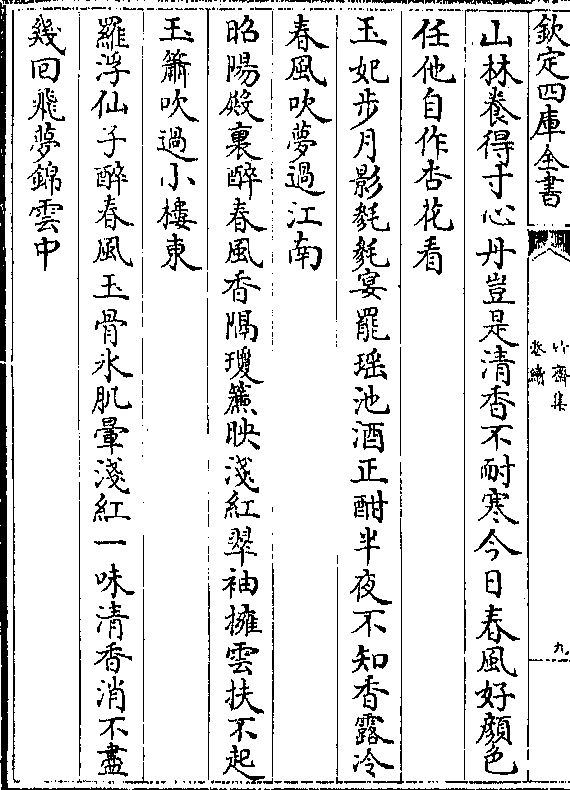 欽定四庫全書
竹齋集
卷續
九
山林養得寸心丹豈是清香不耐寒今日春風好顔色
任他自作杏花看
玉妃步月影毿毿宴罷瑶池酒正酣半夜不知香露冷
春風吹夢過江南
昭陽殿裏醉春風香隔瓊簾映淺紅翠袖擁雲扶不起
玉簫吹過小樓東
羅浮仙子醉春風玉骨氷肌暈淺紅一味清香消不盡
幾回飛夢錦雲中